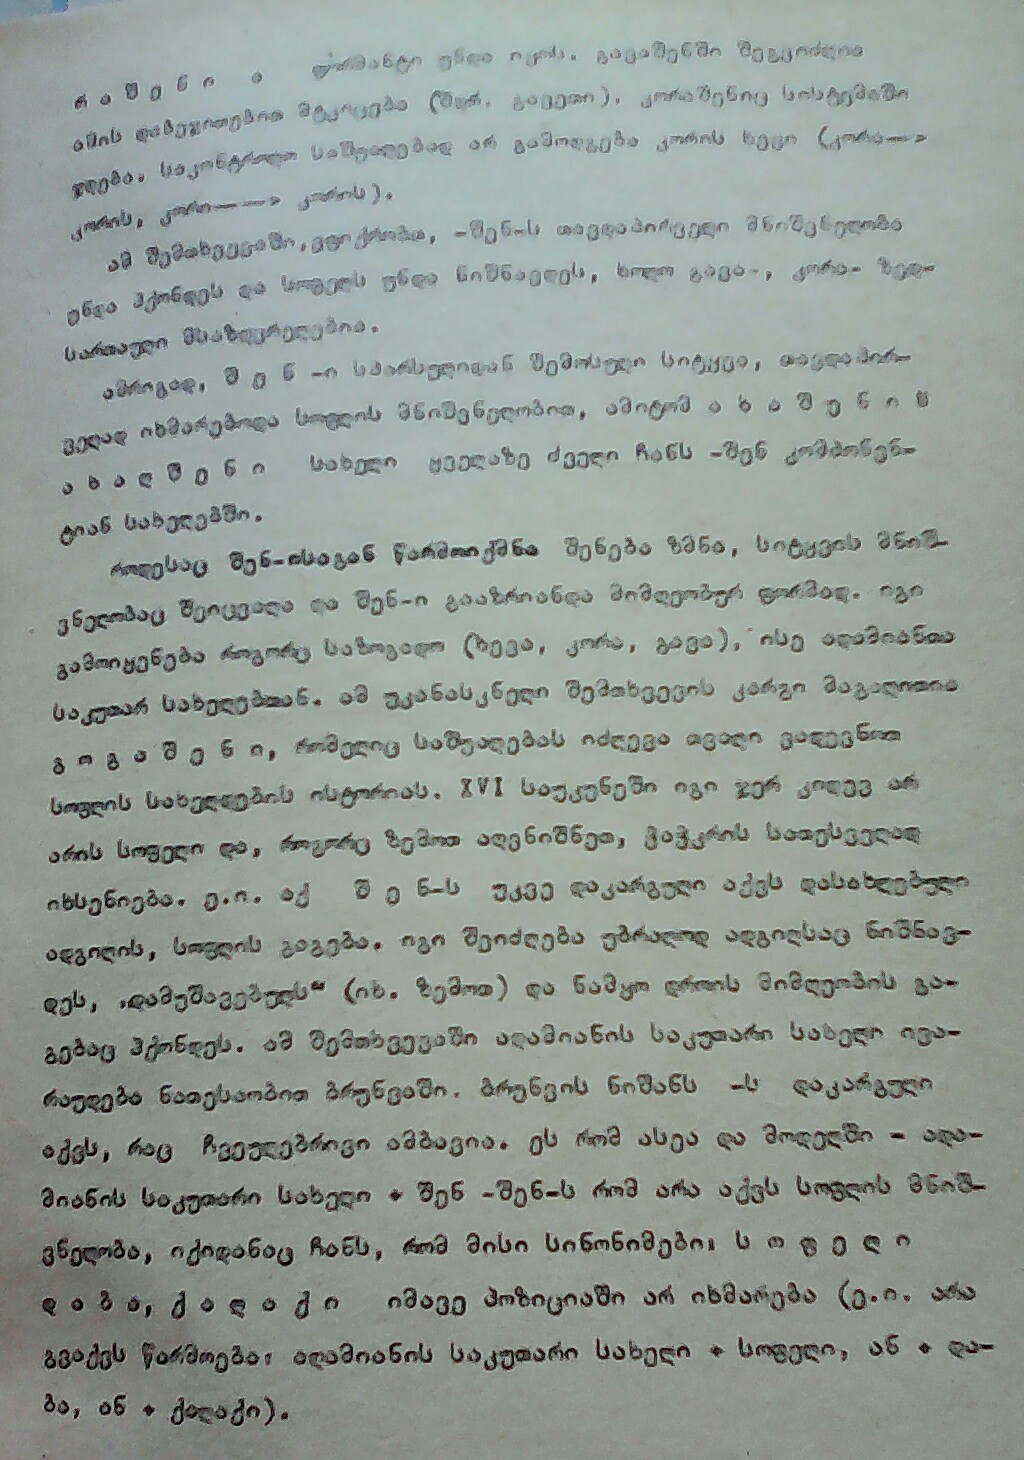 რ ა შ ე ნ ი ა ფორმანტი უნდა იყოს. გავაშენში შეგვიძლია
ამის დაბეჯითებით მტკიცება (შდრ. გავეთი). კორაშენიც სისტემაში
ჯდება. საკონტროლო საშუალებად არ გამოდგება კორის ხევი (კორა—>
კორის, კორი——> კორის).
ამ შემთხვევაში, ვფიქრობთ, -შენ-ს თავდაპირველი მნიშვნელობა
უნდა ჰქონდეს და სოფელს უნდა ნიშნავდეს, ხოლო გავა-, კორა- ზედ-
სართაული მსაზღვრელებია.
ამრიგად, შ ე ნ -ი სპარსულიდან შემოსული სიტყვა, თავდაპირ-
ველად იხმარებოდა სოფლის მნიშვნელობით, ამიტომ ა ხ ა შ ე ნ ი ‖
ა ხ ა ლ შ ე ნ ი სახელი ყველაზე ძველი ჩანს -შენ კომპონენ-
ტიან სახელებში.
როდესაც შენ-ისაგან წარმოიქმნა შენება ზმნა, სიტყვის მნიშ-
ვნელობაც შეიცვალა და შენ-ი გააზრიანდა მიმღეობურ ფორმად. იგი
გამოიყენება როგორც საზოგადო (ზევა, კორა, გავა), ისე ადამიანთა
საკუთარ სახელებთან. ამ უკანასკნელი შემთხვევის კარგი მაგალითია
გ ო გ ა შ ე ნ ი, რომელიც საშუალებას იძლევა თვალი ვადევნოთ
სოფლის სახელდების ისტორიას. XVI საუკუნეში იგი ჯერ კიდევ არ
არის სოფელი და, როგორც ზემოთ აღვნიშნეთ, ჭაჭკრის სათესველად
იხსენიება. ე.ი. აქ შ ე ნ-ს უკვე დაკარგული აქვს დასახლებული
ადგილის, სოფლის გაგება. იგი შეიძლება უბრალოდ ადგილსაც ნიშნავ-
დეს, „დამუშავებულს“ (იხ. ზემოთ) და ნამყო დროის მიმღეობის გა-
გებაც ჰქონდეს. ამ შემთხვევაში ადამიანის საკუთარი სახელი ივა-
რაუდება ნათესაობით ბრუნვაში. ბრუნვის ნიშანს -ს დაკარგული
აქვს, რაც ჩვეულებრივი ამბავია. ეს რომ ასეა და მოდელში - ადა-
მიანის საკუთარი სახელი + შენ -შენ-ს რომ არა აქვს სოფლის მნიშ-
ვნელობა, იქიდანაც ჩანს, რომ მისი სინონიმები: ს ო ფ ე ლ ი
დ ა ბ ა, ქ ა ლ ა ქ ი იმავე პოზიციაში არ იხმარება (ე.ი. არა
გვაქვს წარმოება: ადამიანის საკუთარი სახელი + სოფელი, ან + და-
ბა, ან + ქალაქი).